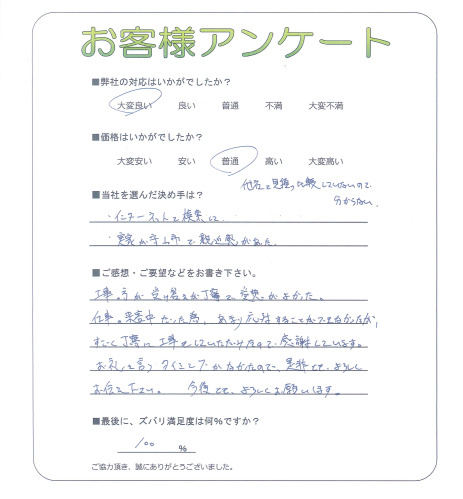 お客様アンケート
■弊社の対応はいかがでしたか？
大変良い 良い 普通 不満 大変不満
■価格はいかがでしたか？
大変安い 安い 普通 高い 大変高い
他社と見積り比較していないので
分からない
■当社を選んだ決め手は？
・インターネットで検索して
・実家が守山市で親近感がわいた。
■ご感想・ご要望などをお書き下さい。
工事の方が受け答えが丁寧で感じがよかった。
仕事の来客中だった為、あまり応対することができなかったが、
すごく丁寧に工事をしていただけたので感謝しています。
お礼を言うタイミングがなかったので、是非ともよろしく
お伝え下さい。 今後とも、よろしくお願いします。
■最後に、ズバリ満足度は何％ですか？
100 ％
ご協力頂き、誠にありがとうございました。